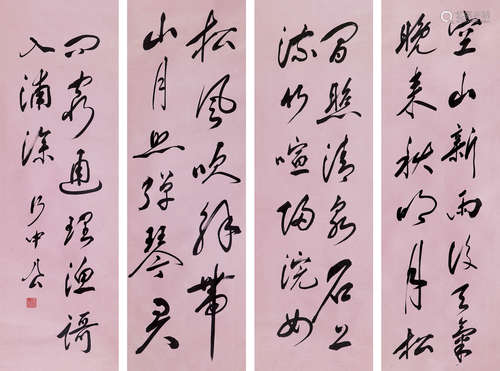 空山新雨後天氣
晚来秋明月松
間照清泉石上
流竹喧歸浣女
松風吹解帶
山月照彈琴君
問窮通理漁謌
入浦深